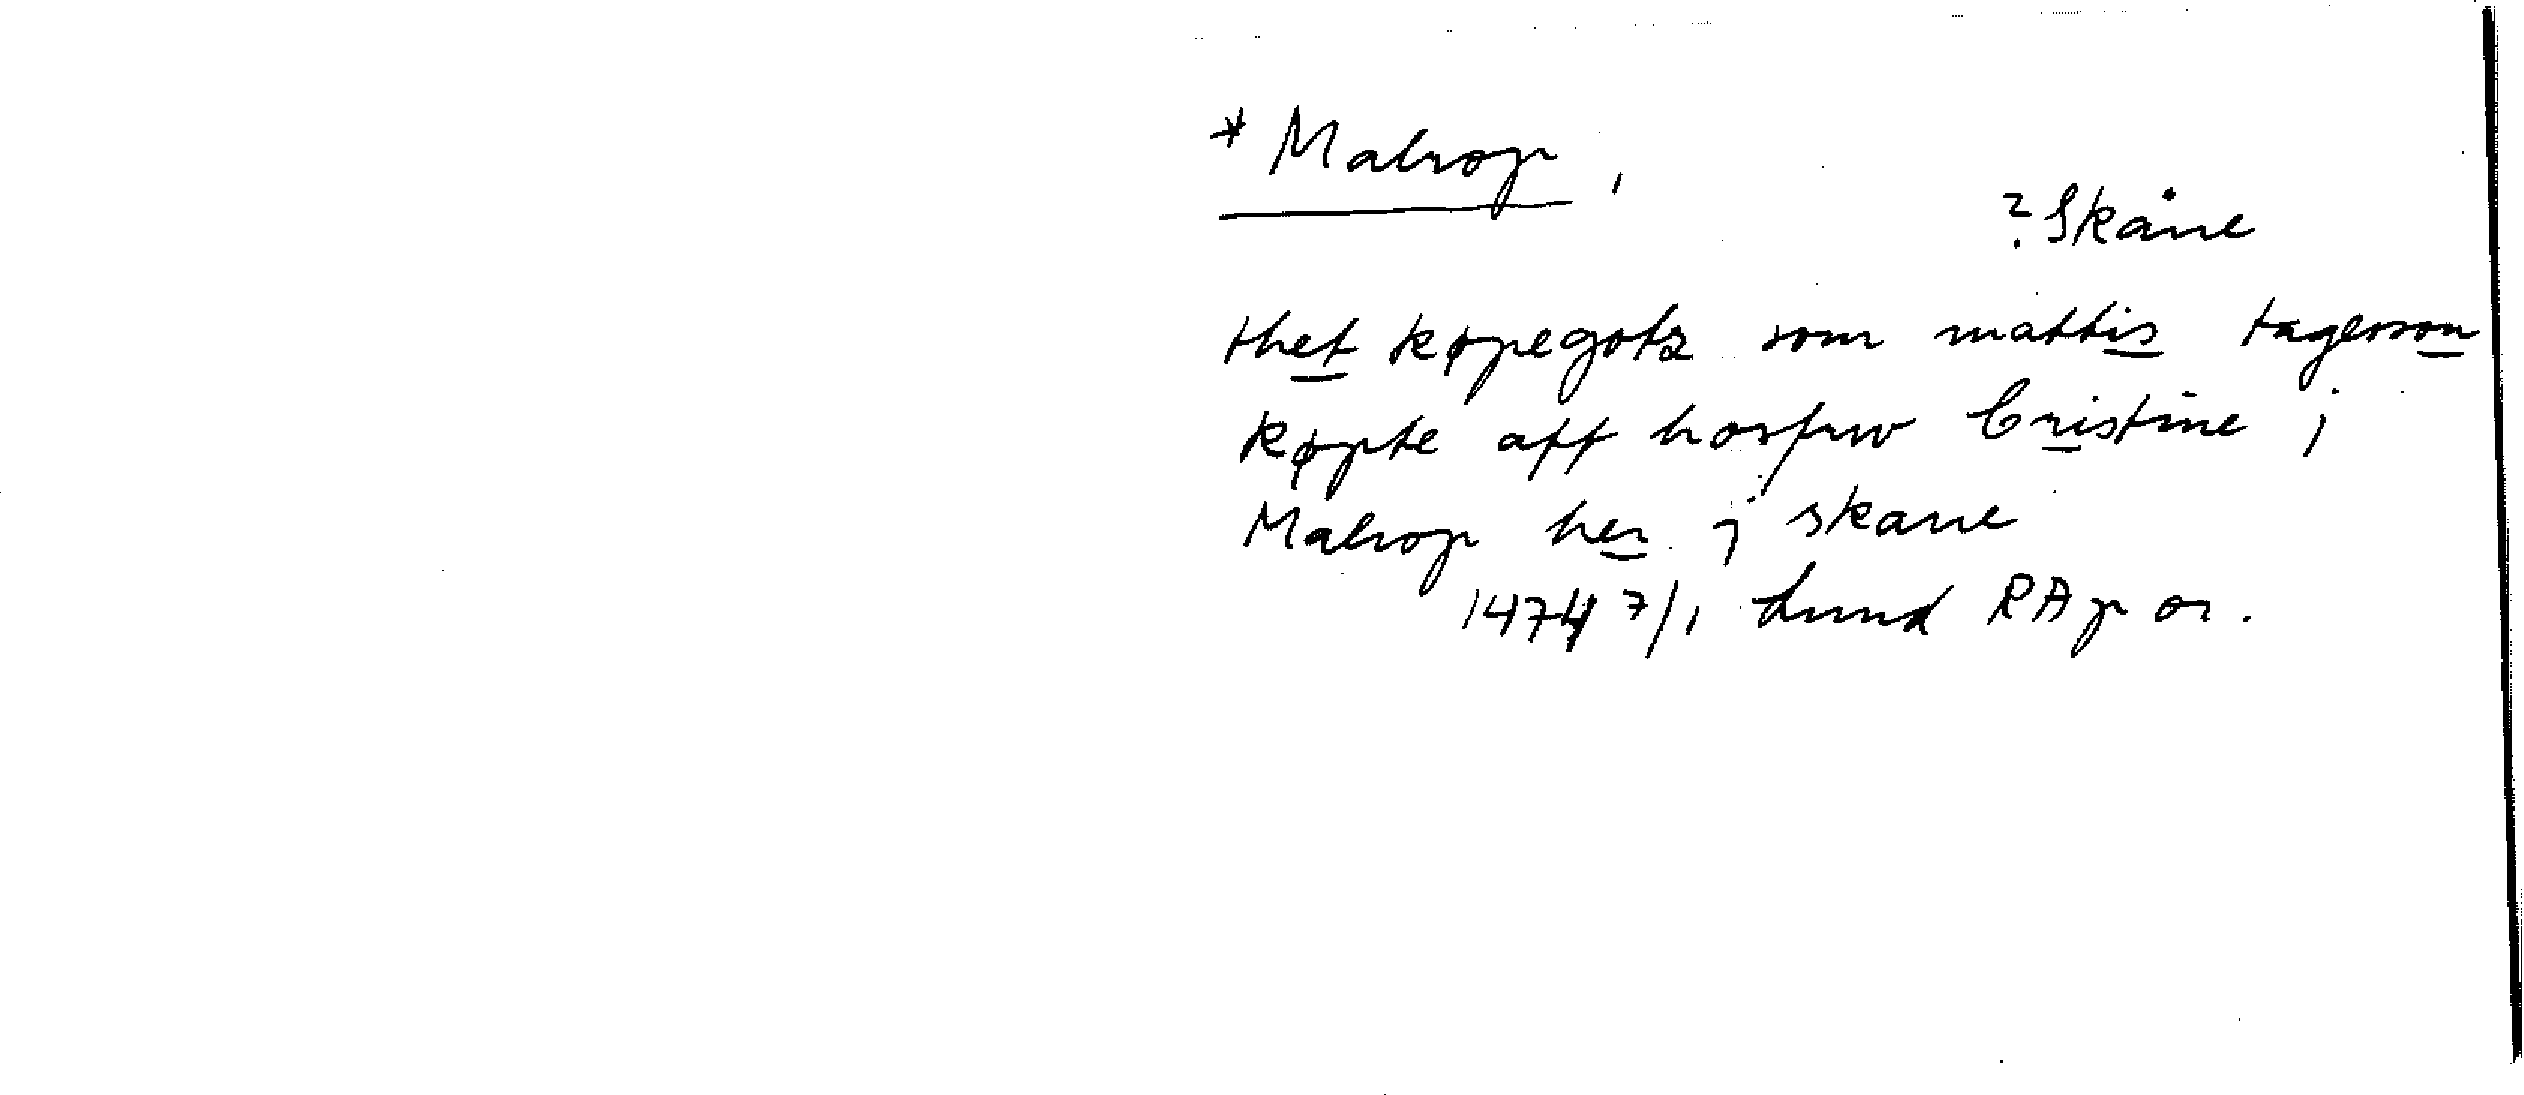 * Malrop,
? Skåne
thet køpegotz som mattis tagesson
køpte aff hosfrw Cristine j
Malrop her j skane
1474 7/1 Lund RA p or.